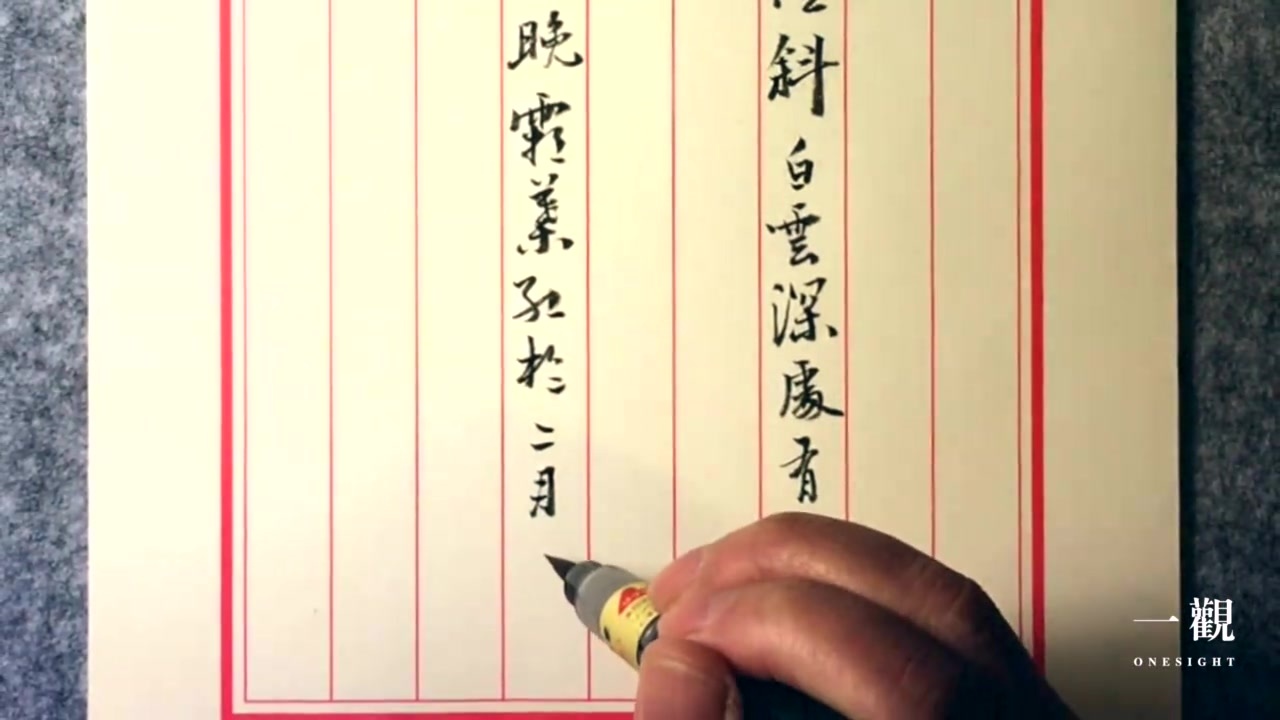 斜白雲深處有
晚霜葉紅於二月
一觀
ONESIGHT